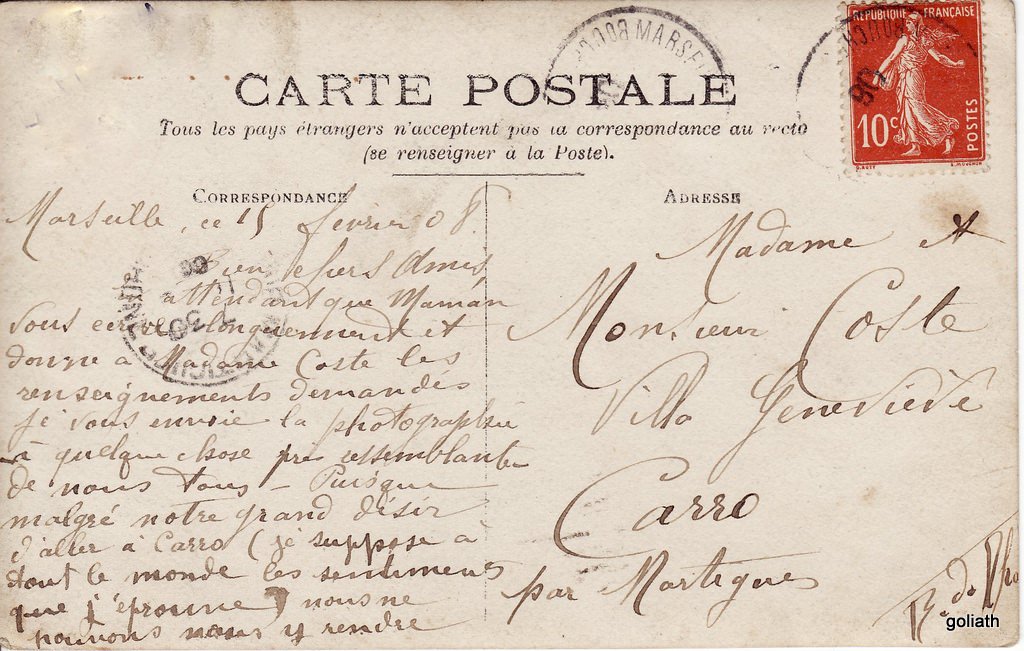 CARTE POSTALE
Tous les pays étrangers n'acceptent pas la correspondance au recto
(se renseigner à la Poste).
CORRESPONDANCE
Marseille, ce 15 fevrier 08.
Bien chers Amis,
attendant que Maman
vous ecrive longuement et
donne à Madame Coste les
renseignements demandés
je vous envoie la photographie
à quelque chose près ressemblante
de nous tous - Puisque
malgré notre grand désir
d'aller à Carro (je suppose à
tout le monde les sentiments
que j'éprouve) nous ne
pouvons nous y rendre
ADRESSE
Madame et
Monsieur Coste
Villa Geneviève
Carro
par Martigues
B. du Rho
REPUBLIQUE FRANÇAISE
10c
POSTES
MARSEI
goliath